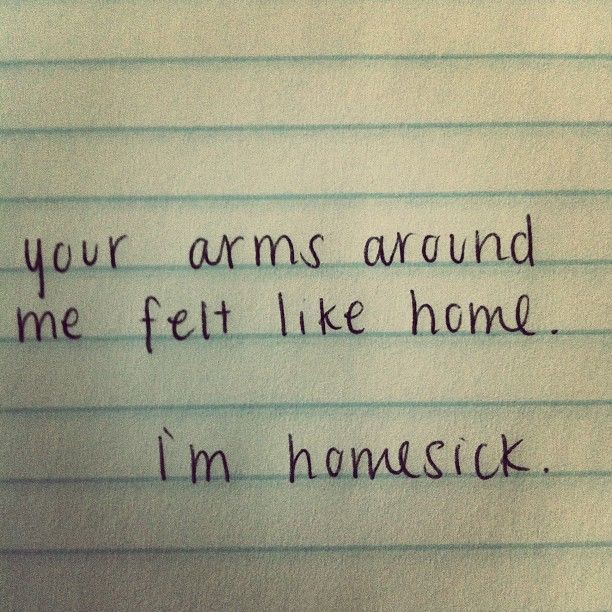 your arms around
me felt like home.
i'm homesick.